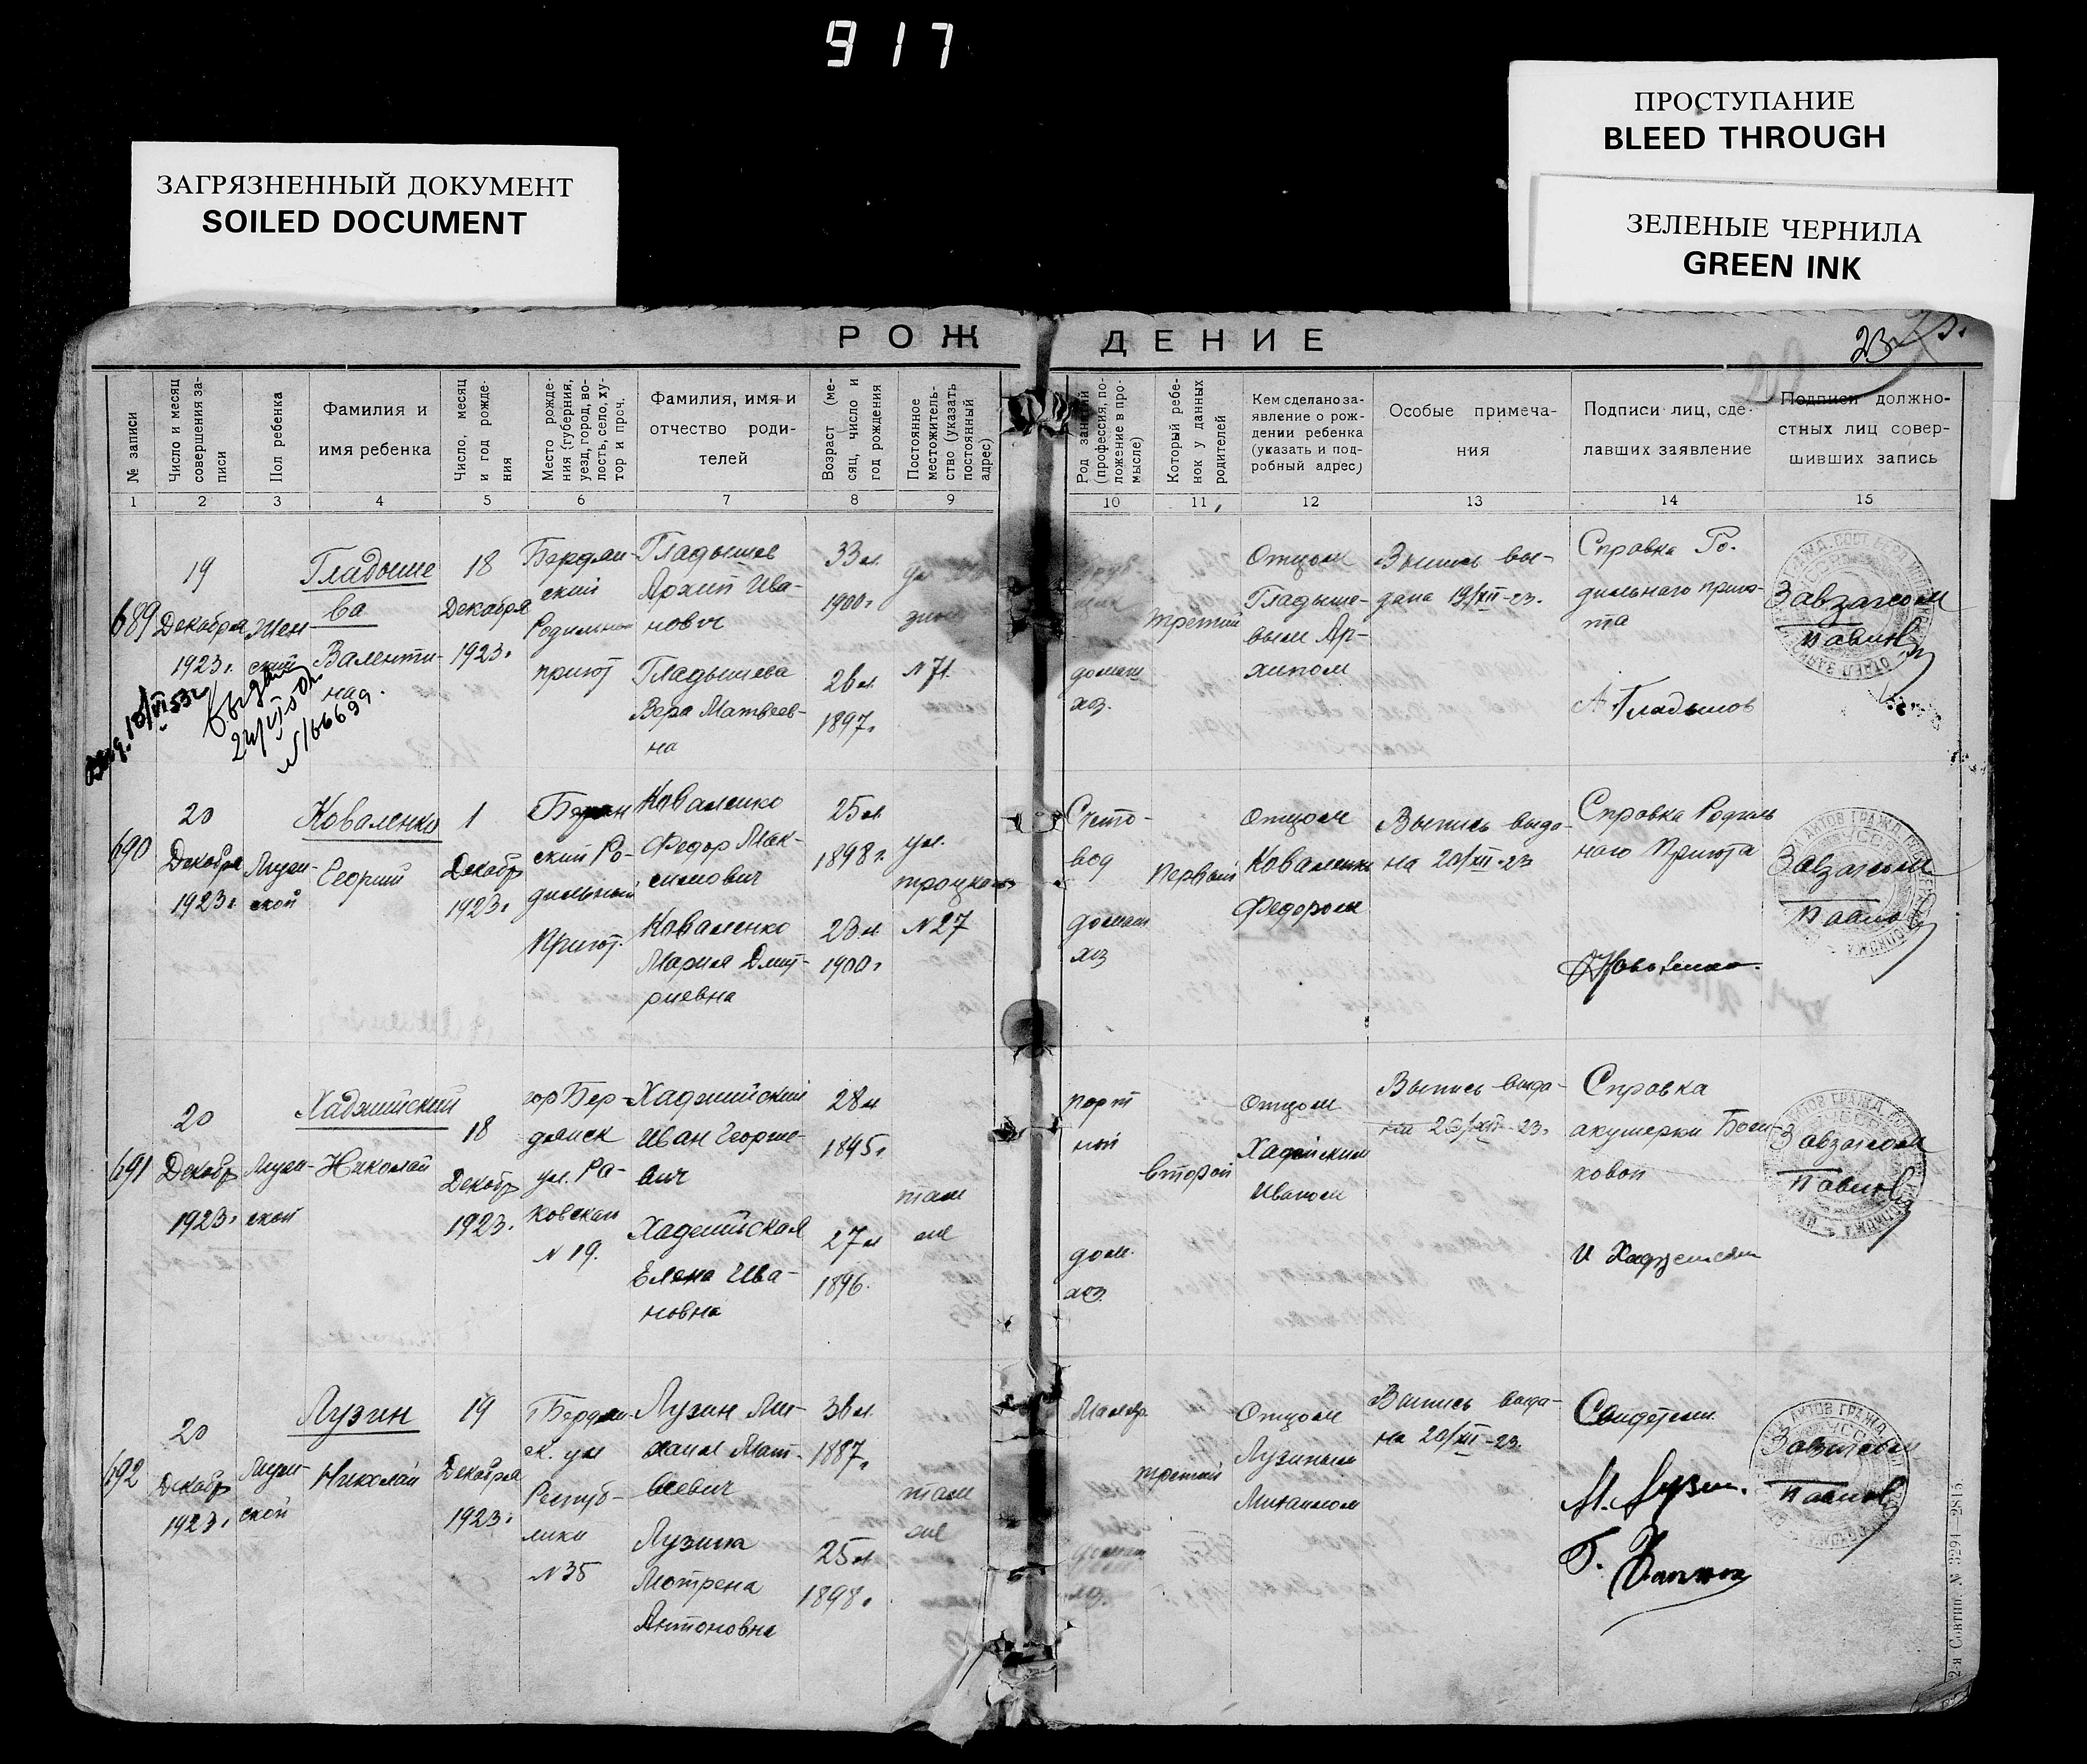 917
ПРОСТУПАНИЕ
BLEED THROUGH
ЗАГРЯЗНЕННЫЙ ДОКУМЕНТ
SOILED DOCUMENT
ЗЕЛЕНЫЕ ЧЕРНИЛА
GREEN INK
РОЖДЕНИЕ
23
№ записи
Число и месяц
совершения за-
писи
Пол ребенка
Фамилия и
имя ребенка
Число, месяц
и год рожде-
ния
Место рожде-
ния (губерния,
уезд, город, во-
лость, село, ху-
тор и проч.
Фамилия, имя и
отчество роди-
телей
Возраст (ме-
сяц, число и
год рождения
Постоянное
местожитель-
ство (указать
постоянный
адрес)
Род занятий
(профессия, по-
ложение в про-
мысле)
Который ребе-
нок у данных
родителей
Кем сделано за-
явление о рож-
дении ребенка
(указать и под-
робный адрес)
Особые примеча-
ния
Подписи лиц, сде-
лавших заявление
Подписи должно-
стных лиц совер-
шивших запись
1 2 3 4 5 6 7 8 9 10 11 12 13 14 15
689
19
Декабря
1923г.
Жен-
ский
Гладыше
ва
Валенти-
на
18
Декабря
1923г.
Бердян-
ский
Родильн
приют
Гладышев
Архип Ива-
нович
Гладышева
Вера Матвеев-
на
33 л.
1900г
26 л.
1897г
N 71.
домаш
хоз.
третий
Отцом
Гладыше-
вым Ар-
хипом
Выпись вы-
дана 19/XII-23.
Справка Ро-
дильного прию-
та
А. Гладышов
Завзагсом
Павлов
18/VI 53г
выдано
N 166639
690
20
Декабря
1923г.
Мужс-
ской
Коваленко
Георгий
1
Декабр
1923г.
Бердян
ский Ро-
дильный
Приют.
Коваленко
Федор Мак-
симович
Коваленко
Мария Дмит-
риевна
25 л.
1898г.
23 л.
1900г
ул.
троцкого
N 27
Счето-
вод
домаш
хоз
Первый
Отцом
Коваленко
Федором
Выпись выда-
на 20/XII-23
Справка Родиль
ного Приюта
Коваленко
Завзагсом
Павлов
691
20
Декабр
1923г.
Мужс-
ской
Хаджийский
Николай
18
Декабр
1923г.
гор Бер-
дянск
ул. Ра-
ковская
N 19.
Хаджийский
Иван Георгие-
вич
Хаджийская
Елена Ива-
новна
28 л
1895г
27 л
1896.
там
же
порт
ной
дом.
хоз.
второй
Отцом
Хаджийским
Иваном
Выпись выда-
на 20/XII-23.
Справка
акушерки
И Хаджийский
Завзагсом
Павлов
692
20
Декабр
1923г.
Мужс-
ской
Лузин
Николай
19
Декабря
1923г.
г Бердян-
ск. ул
Респуб-
лики
N 35
Лузин Ми-
хаил Мат-
веевич
Лузина
Мотрена
Антоновна
36 л.
1887г
25 л.
1898г.
там
же
Маляр
домаш
хоз.
третий
Отцом
Лузиным
Михаилом
Выпись выда-
на 20/XII-23.
Свидетели
М. Лузин.
Завзагсом
Павлов
2-я Совтип. № 3294—2815.